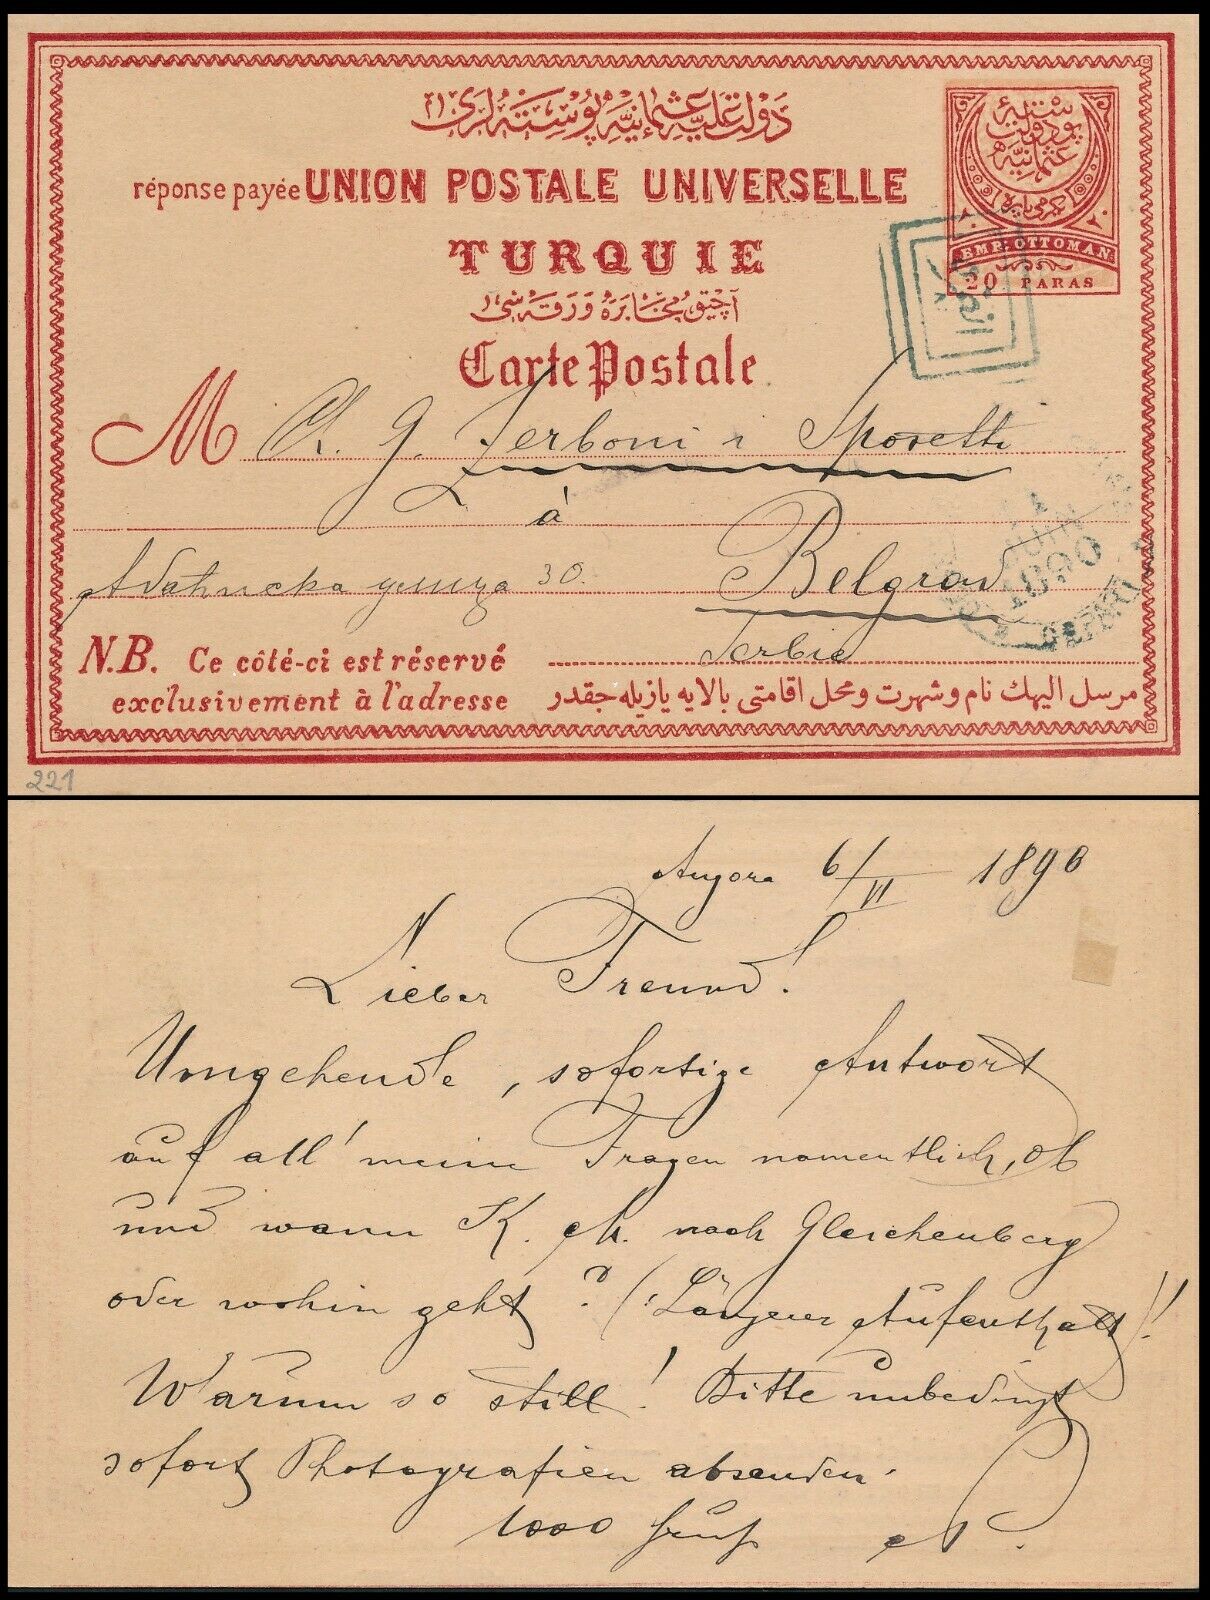 دولت علیه عثمانیه پوسته لری
réponse payée UNION POSTALE UNIVERSELLE
TURQUIE
آچیق مخابره ورقه سی
Carte Postale
EMP. OTTOMAN
20 PARAS
M Ch. G. Zerboni
à
30. Belgrad
Serbie
JUIN
1890
N.B. Ce côté-ci est réservé
exclusivement à l'adresse
مرسل الیهك نام وشهرت ومحل اقامتی بالایه یازیله جقدر
221
Angora 6/VI 1890
Lieber Freund!
Umgehende, sofortige Antwort
auf all' meine Fragen namentlich, ob
und wann K. M. nach Gleichenberg
oder wohin geht? (: Längerer Aufenthalt)!!
Warum so still! Bitte unbedingt
sofort Photografien absenden.
1000 Gruß A.